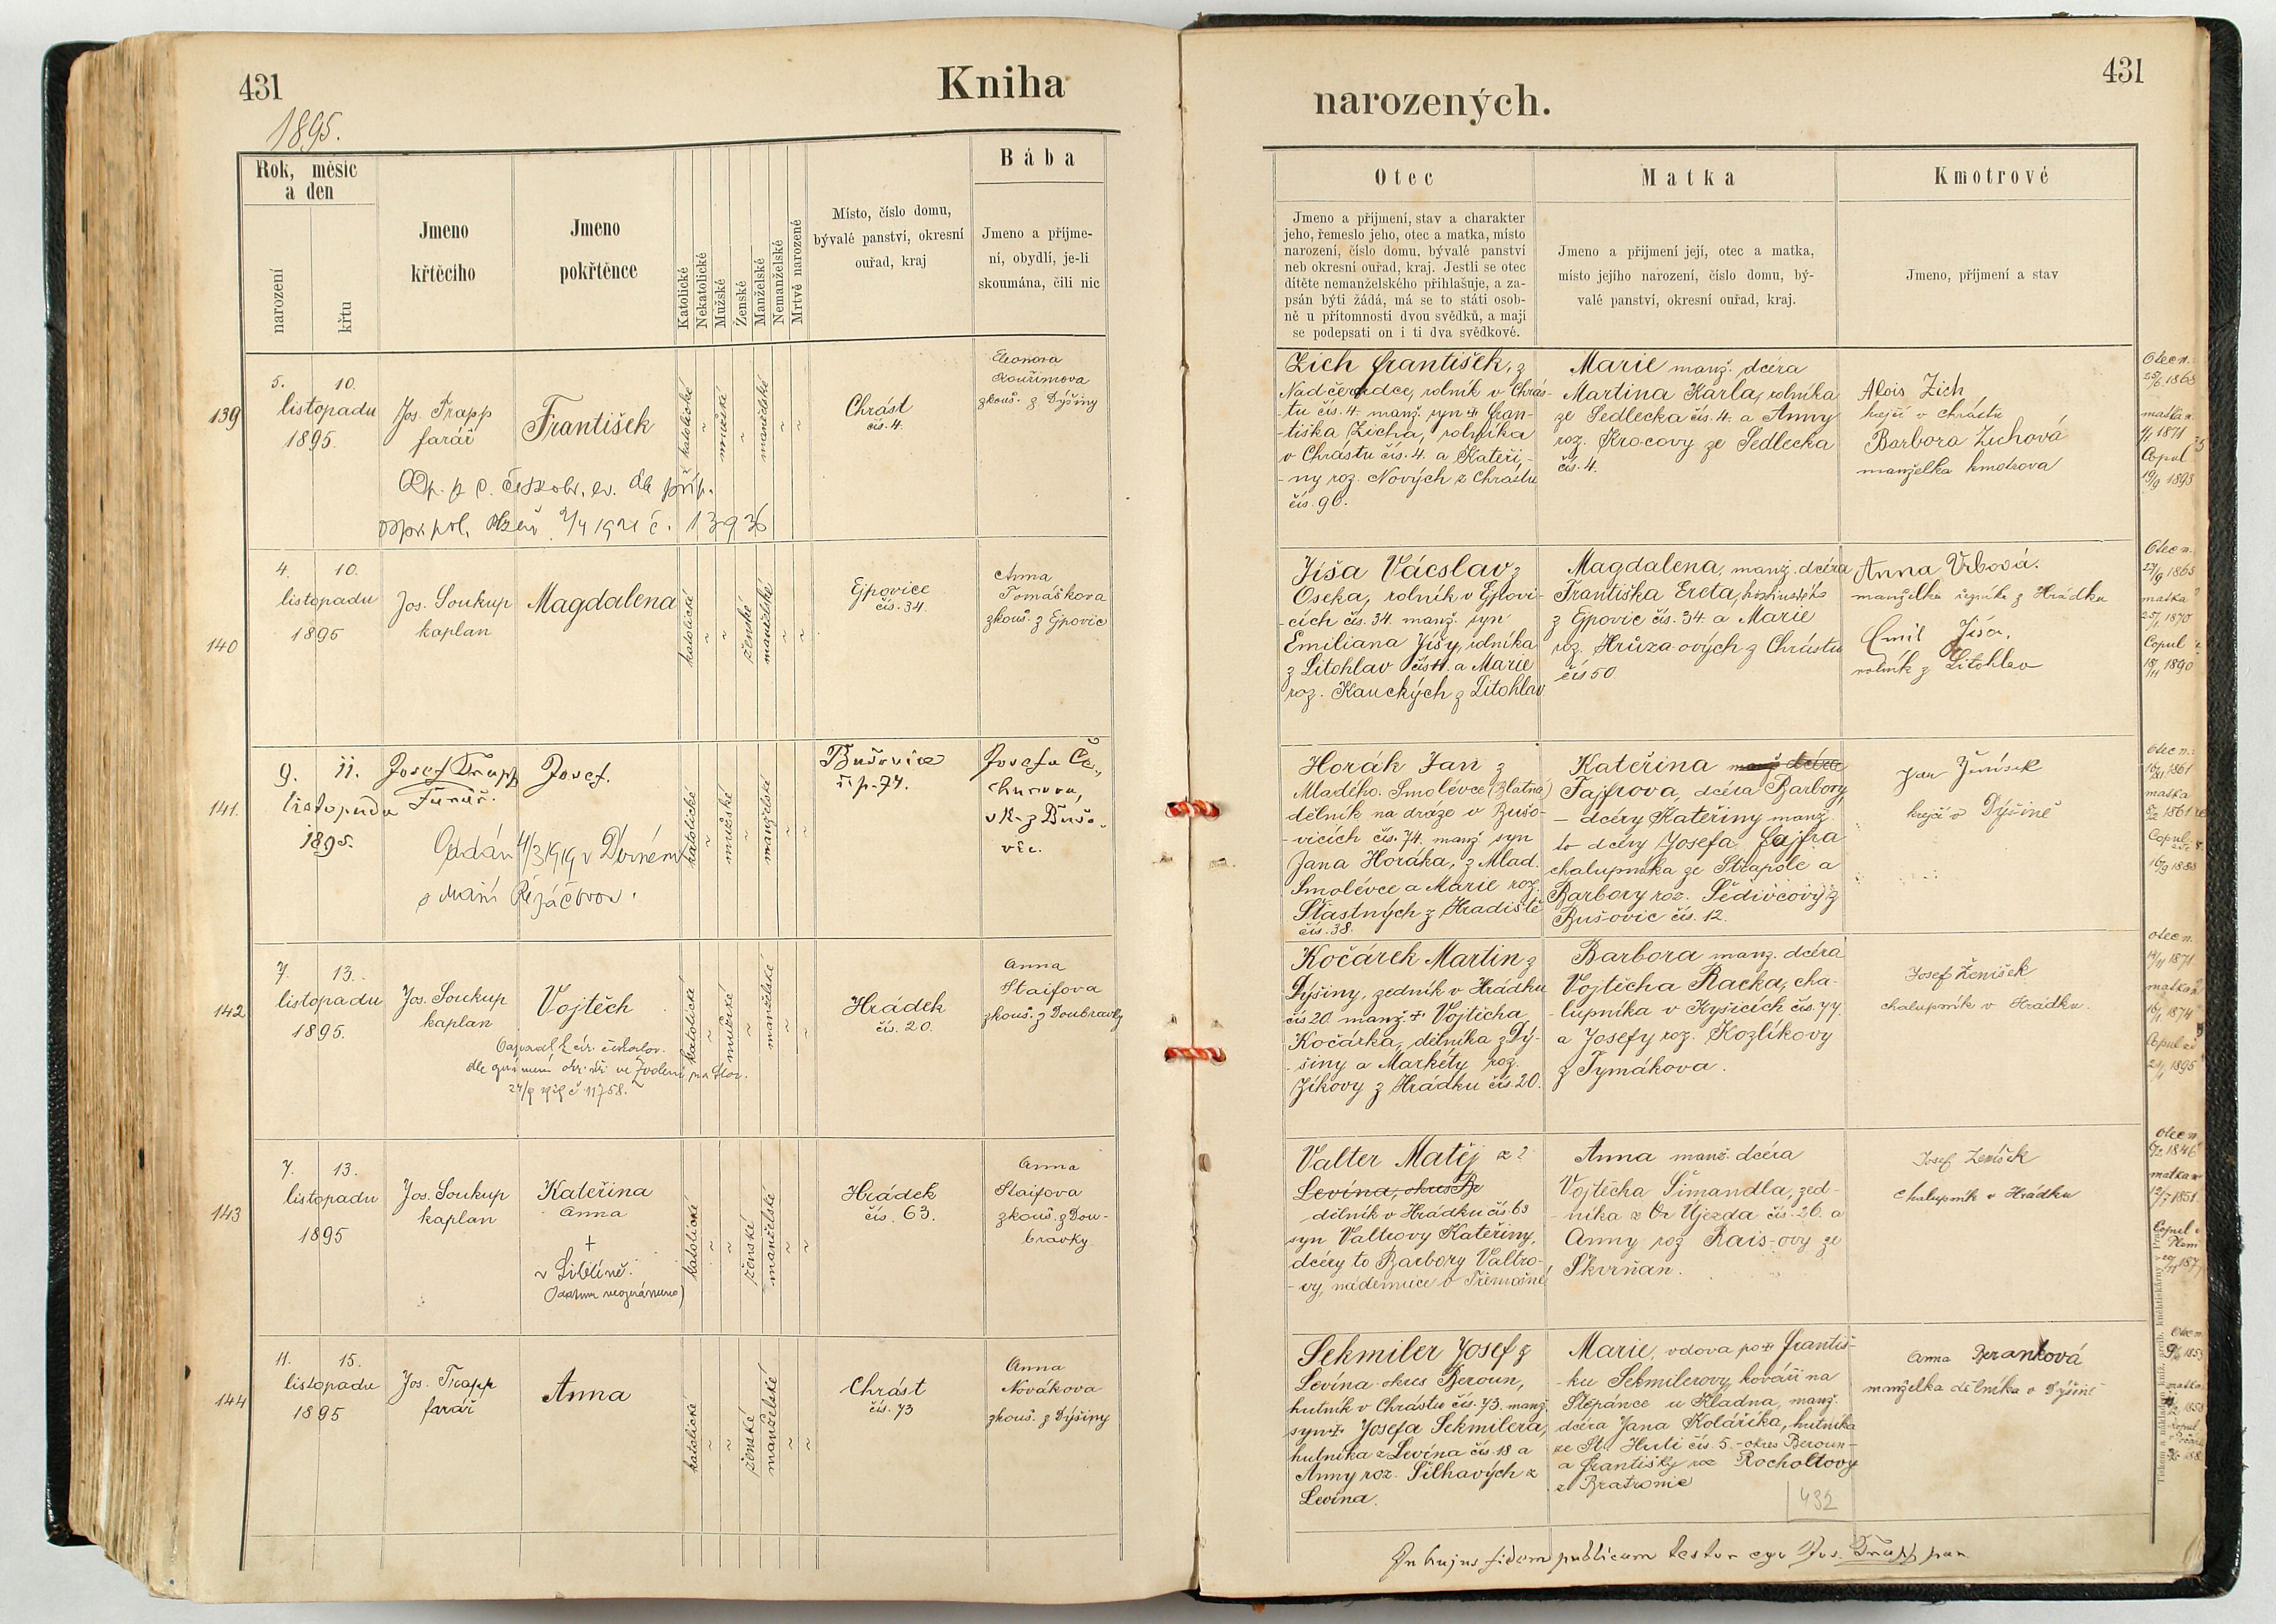 431
Kniha
1895.
Rok, měsíc
a den
narození
křtu
Jmeno
křtěcího
Jmeno
pokřtěnce
Katolické
Nekatolické
Mužské
Ženské
Manželské
Nemanželské
Mrtvě narozené
Místo, číslo domu,
bývalé panství, okresní
ouřad, kraj
Bába
Jmeno a příjme-
ní, obydlí, je-li
skoumána, čili nic
139
5. 10.
listopadu
1895.
Jos. Trapp
farář
František
katolické
mužské
manželské
Chrást
čís. 4.
Eleonora
Kouřimova
zkouš. z Dýšiny
1921 č. 13936
140
4. 10.
listopadu
1895
Jos. Soukup
kaplan
Magdalena
katolické
ženské
manželské
Ejpovice
čís. 34.
Anna
Tomáškova
zkouš. z Ejpovic
141.
9. 11.
listopadu
1895.
Josef Trapp
Farář.
Josef.
katolické
mužské
manželské
Bušovice
č. p. 74.
Josefa
z Bušo-
vic.
Oddán 4/3 1919 v
s Marií
142
7. 13.
listopadu
1895.
Jos. Soukup
kaplan
Vojtěch
katolické
mužské
manželské
Hrádek
čís. 20.
Anna
Staifova
zkouš. z Doubravky
dle ve Zvoleni na Slov.
č 11758.
143
7. 13.
listopadu
1895
Jos. Soukup
kaplan
Kateřina
Anna
+
v Liblíně.
katolické
ženské
manželské
Hrádek
čís. 63.
Anna
Staifova
zkouš. z Dou-
bravky
144
11. 15.
listopadu
1895
Jos. Trapp
farář
Anna
katolické
ženské
manželské
Chrást
čís. 73
Anna
Novákova
zkouš. z Dýšiny
narozených.
431
Otec
Jmeno a příjmení, stav a charakter
jeho, řemeslo jeho, otec a matka, místo
narození, číslo domu, bývalé panství
neb okresní ouřad, kraj. Jestli se otec
dítěte nemanželského přihlašuje, a za-
psán býti žádá, má se to státi osob-
ně u přítomnosti dvou svědků, a mají
se podepsati on i ti dva svědkové.
Matka
Jmeno a příjmení její, otec a matka,
místo jejího narození, číslo domu, bý-
valé panství, okresní ouřad, kraj.
Kmotrové
Jmeno, příjmení a stav
Zich František, z
rolník v Chrás-
tu čís. 4. manž. syn + Fran-
-tiška Zicha, rolníka
v Chrástu čís. 4. a Kateři-
-ny roz. Nových z Chrástu
čís. 90.
Marie manž. dcéra
Martina Karla, rolníka
ze Sedlecka čís. 4. a Anny
roz. Krocovy ze Sedlecka
čís. 4.
Alois Zich
krejčí v Chrástu
Barbora Zichová
manželka kmotrova
Otec n.
matka n.
1871
Copul
1893
Jíša Vácslav z
Oseka, rolník v Ejpovi-
-cích čís. 34. manž. syn
Emiliana Jíšy, rolníka
z Litohlav a Marie
roz. Kauckých z Litohlav
Magdalena, manž. dcéra
Františka Ereta, hostinského
z Ejpovic čís. 34. a Marie
roz. Hrůza-ových z Chrástu
čís 50
Anna Vrbová.
manželka řezníka z Hrádku
Emil Jíša.
rolník z Litohlav
Otec n.
1865
matka
1870
Copul
1890
Horák Jan z
Mladého Smolévce (Zlatná)
dělník na dráze v Bušo-
-vicích čís. 74. manž. syn
Jana Horáka, z Mlad.
Smolévce a Marie roz.
Šťastných z Hradiště
čís. 38.
Kateřina manž dcéra
Fajfrova, dcéra Barbory,
- dcéry Kateřiny manž.
to dcéry Josefa Fajfra
chalupníka ze Střapole a
Barbory roz. Šedivcový z
Bušovic čís. 12.
Jan
krejčí v Dýšině
otec n.
1861
matka
1861
Copul.
1888
Kočárek Martin z
Dýšiny, zedník v Hrádku
čís 20. manž. + Vojtěcha
Kočárka, dělníka z Dý-
-šiny a Markéty roz.
Jíkovy z Hrádku čís. 20.
Barbora manž. dcéra
Vojtěcha Racka, cha-
-lupníka v Kyšicích čís. 77
a Josefy roz. Kozlíkovy
z Tymákova.
Josef Ženíšek
chalupník v Hrádku.
otec n.
1871
matka n.
1874
Copul
1895
Valter Matěj z ?
Levína, okres Be
dělník v Hrádku čís 63
syn Valtrovy Kateřiny,
dcéry to Barbory Valtro-
-vy, nádennice v Třemošné
Anna manž. dcéra
Vojtěcha Šimandla, zed-
níka z Újezda čís. 26. a
Anny roz Rais-ovy ze
Skvrňan.
Josef Ženíšek
chalupník v Hrádku
otec n
1846
matka n
1851.
Copul
Sekmiler Josef z
Levína okres Beroun,
hutník v Chrástu čís. 73. manž.
syn + Josefa Sekmilera,
hutníka z Levína čís. 18 a
Anny roz. Šilhavých z
Levína.
Marie, vdova po + Františ-
-ku Sekmilerovy, kováři na
Štěpánce u Kladna, manž.
dcéra Jana Kolaříka, hutníka
ze St. Huti čís. 5. - okres Beroun -
a Františky roz Rocholtovy
z Bratronic
Anna Beranková
manželka dělníka v Dýšině
Otec n
1853
matka
1858
432
In hujus fidem publicam testor ego Jos. Trapp par.